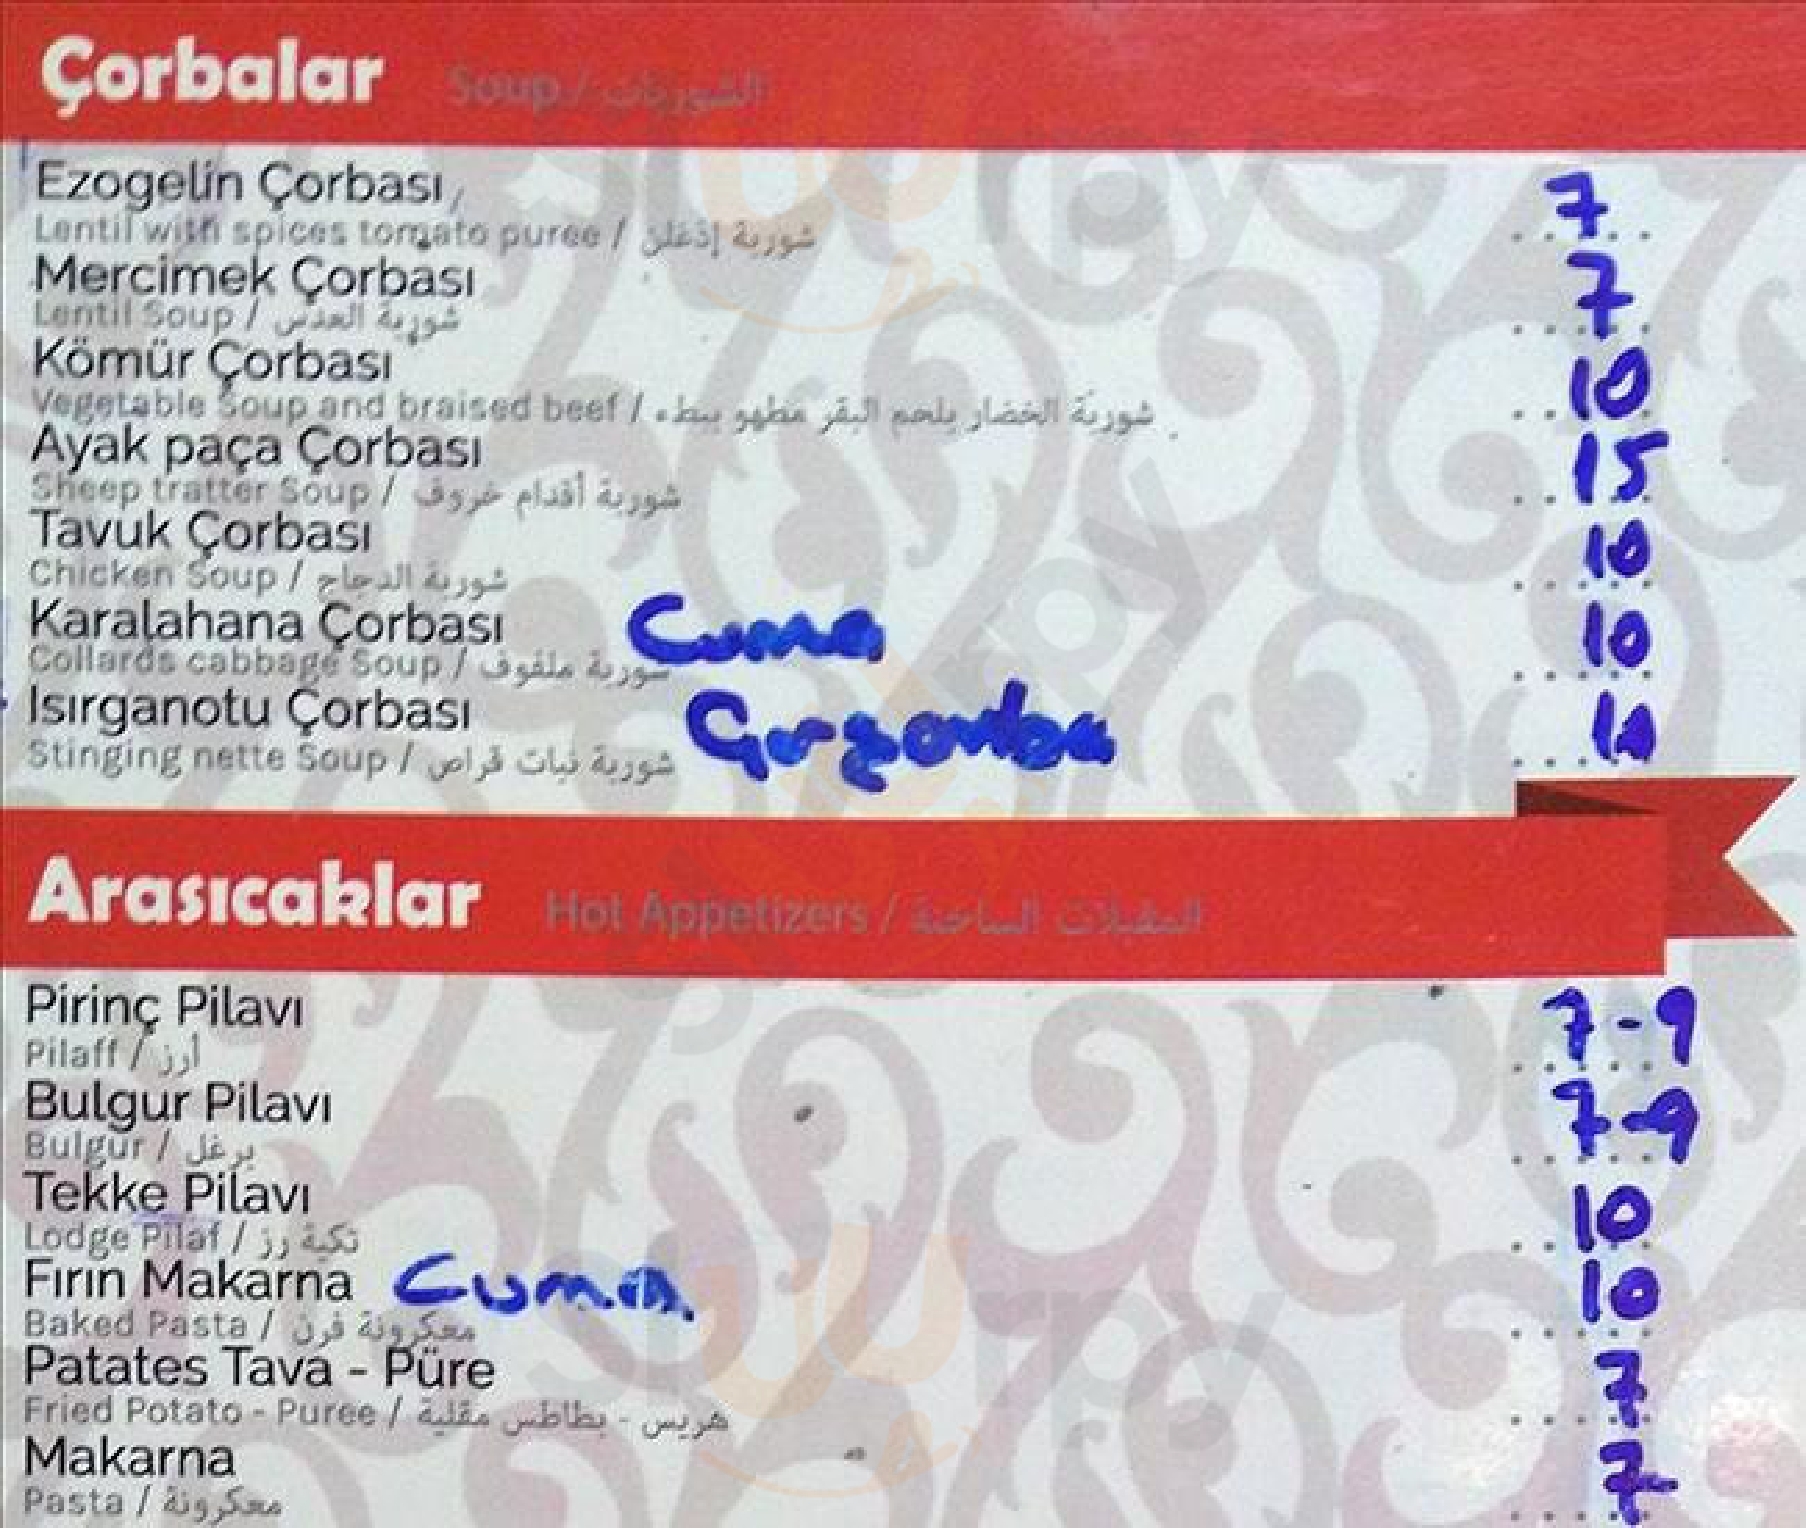 Çorbalar Soup / الشوربات
Ezogelin Çorbası 7
Lentil with spices tomato puree / شوربة إذغلن
Mercimek Çorbası 7
Lentil Soup / شوربة العدس
Kömür Çorbası 10
Vegetable Soup and braised beef / شوربة الخضار بلحم البقر مطهو ببطء
Ayak paça Çorbası 15
Sheep tratter Soup / شوربة أقدام خروف
Tavuk Çorbası 10
Chicken Soup / شوربة الدجاج
Karalahana Çorbası Cuma 10
Collards cabbage Soup / شوربة ملفوف
Isırganotu Çorbası 10
Stinging nette Soup / شوربة نبات قراص
Arasıcaklar Hot Appetizers / المقبلات الساخنة
Pirinç Pilavı 7-9
Pilaff / أرز
Bulgur Pilavı 7-9
Bulgur / برغل
Tekke Pilavı 10
Lodge Pilaf / تكية رز
Fırın Makarna Cuma 10
Baked Pasta / معكرونة فرن
Patates Tava - Püre 7
Fried Potato - Puree / هريس - بطاطس مقلية
Makarna 7
Pasta / معكرونة